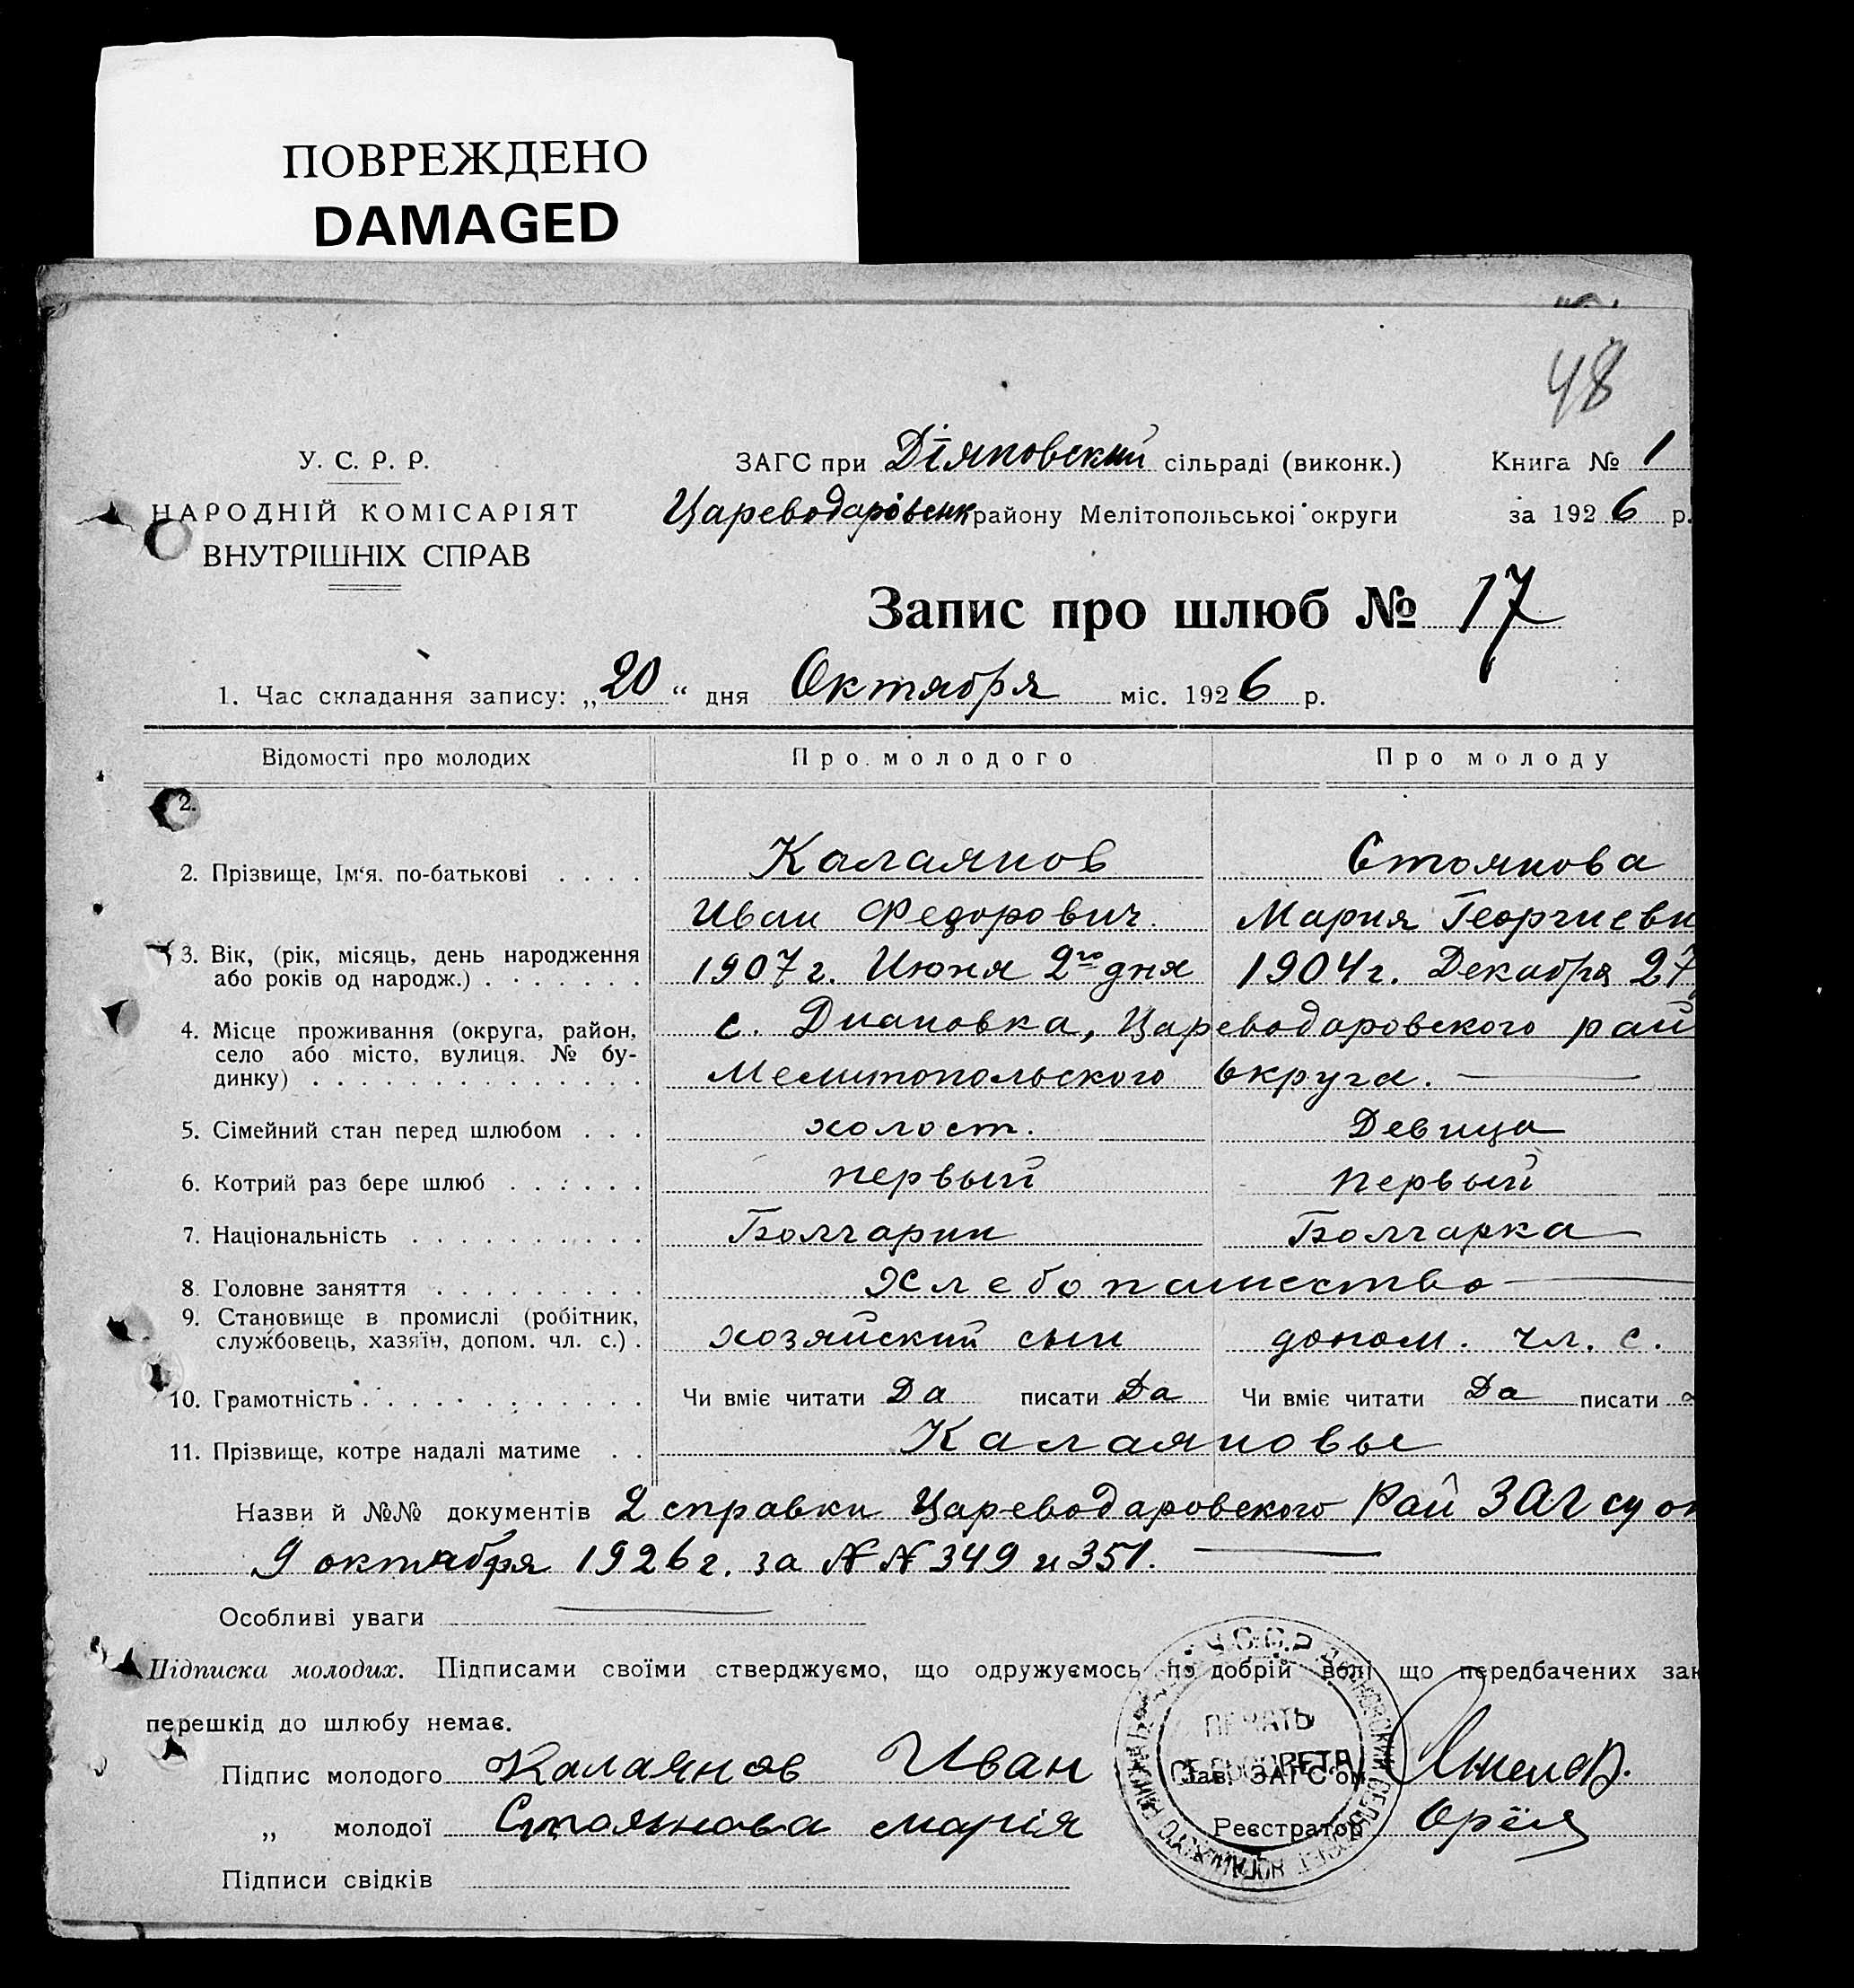 ПОВРЕЖДЕНО
DAMAGED
48
У. С. Р. Р.
НАРОДНІЙ КОМІСАРІЯТ
ВНУТРІШНІХ СПРАВ
ЗАГС при Діяновский сільраді (виконк.) Книга № 1
Цареводаровенк району Мелітопольської округи за 1926 р.
Запис про шлюб № 17
1. Час складання запису: „20“ дня Октября міс. 1926 р.
Відомості про молодих Про молодого Про молоду
2.
2. Прізвище, Ім‘я. по-батькові . . . . Калаянов Стоянова
Иван Федорович. Мария Георгиевн
3. Вік, (рік, місяць, день народження
або років од народж.) . . . . . . . 1907 г. Июня 2го дня 1904 г. Декабря 27
4. Місце проживання (округа, район,
село або місто, вулиця. № бу-
динку) . . . . . . . . . . . . . .
с. Диановка, Цареводаровского рай
Мелитопольского округа.
5. Сімейний стан перед шлюбом . . . холост. Девица
6. Котрий раз бере шлюб . . . . . . первый первый
7. Національність . . . . . . . . . . Болгарин Болгарка
8. Головне заняття . . . . . . . . . Хлебопашество
9. Становище в промислі (робітник,
службовець, хазяїн, допом. чл. с.) . хозяйский сын допом. чл. с.
10. Грамотність . . . . . . . . . . . . Чи вміє читати Да писати Да Чи вміє читати Да писати
11. Прізвище, котре надалі матиме . . Калаяновы
Назви й №№ документів 2 справки Цареводаровского Рай ЗАГСу от
9 октября 1926 г. за №№ 349 и 351.
Особливі уваги
Підписка молодих. Підписами своїми стверджуємо, що одружуємось по добрій волі що передбачених зак
перешкід до шлюбу немає.
У.С.С.Р
ПЕЧАТЬ
СЕЛЬСОВЕТА
Підпис молодого Калаянов Иван Зав. ЗАГС'ом
„ молодої Стоянова Марія Реєстратор Орёл
Підписи свідків